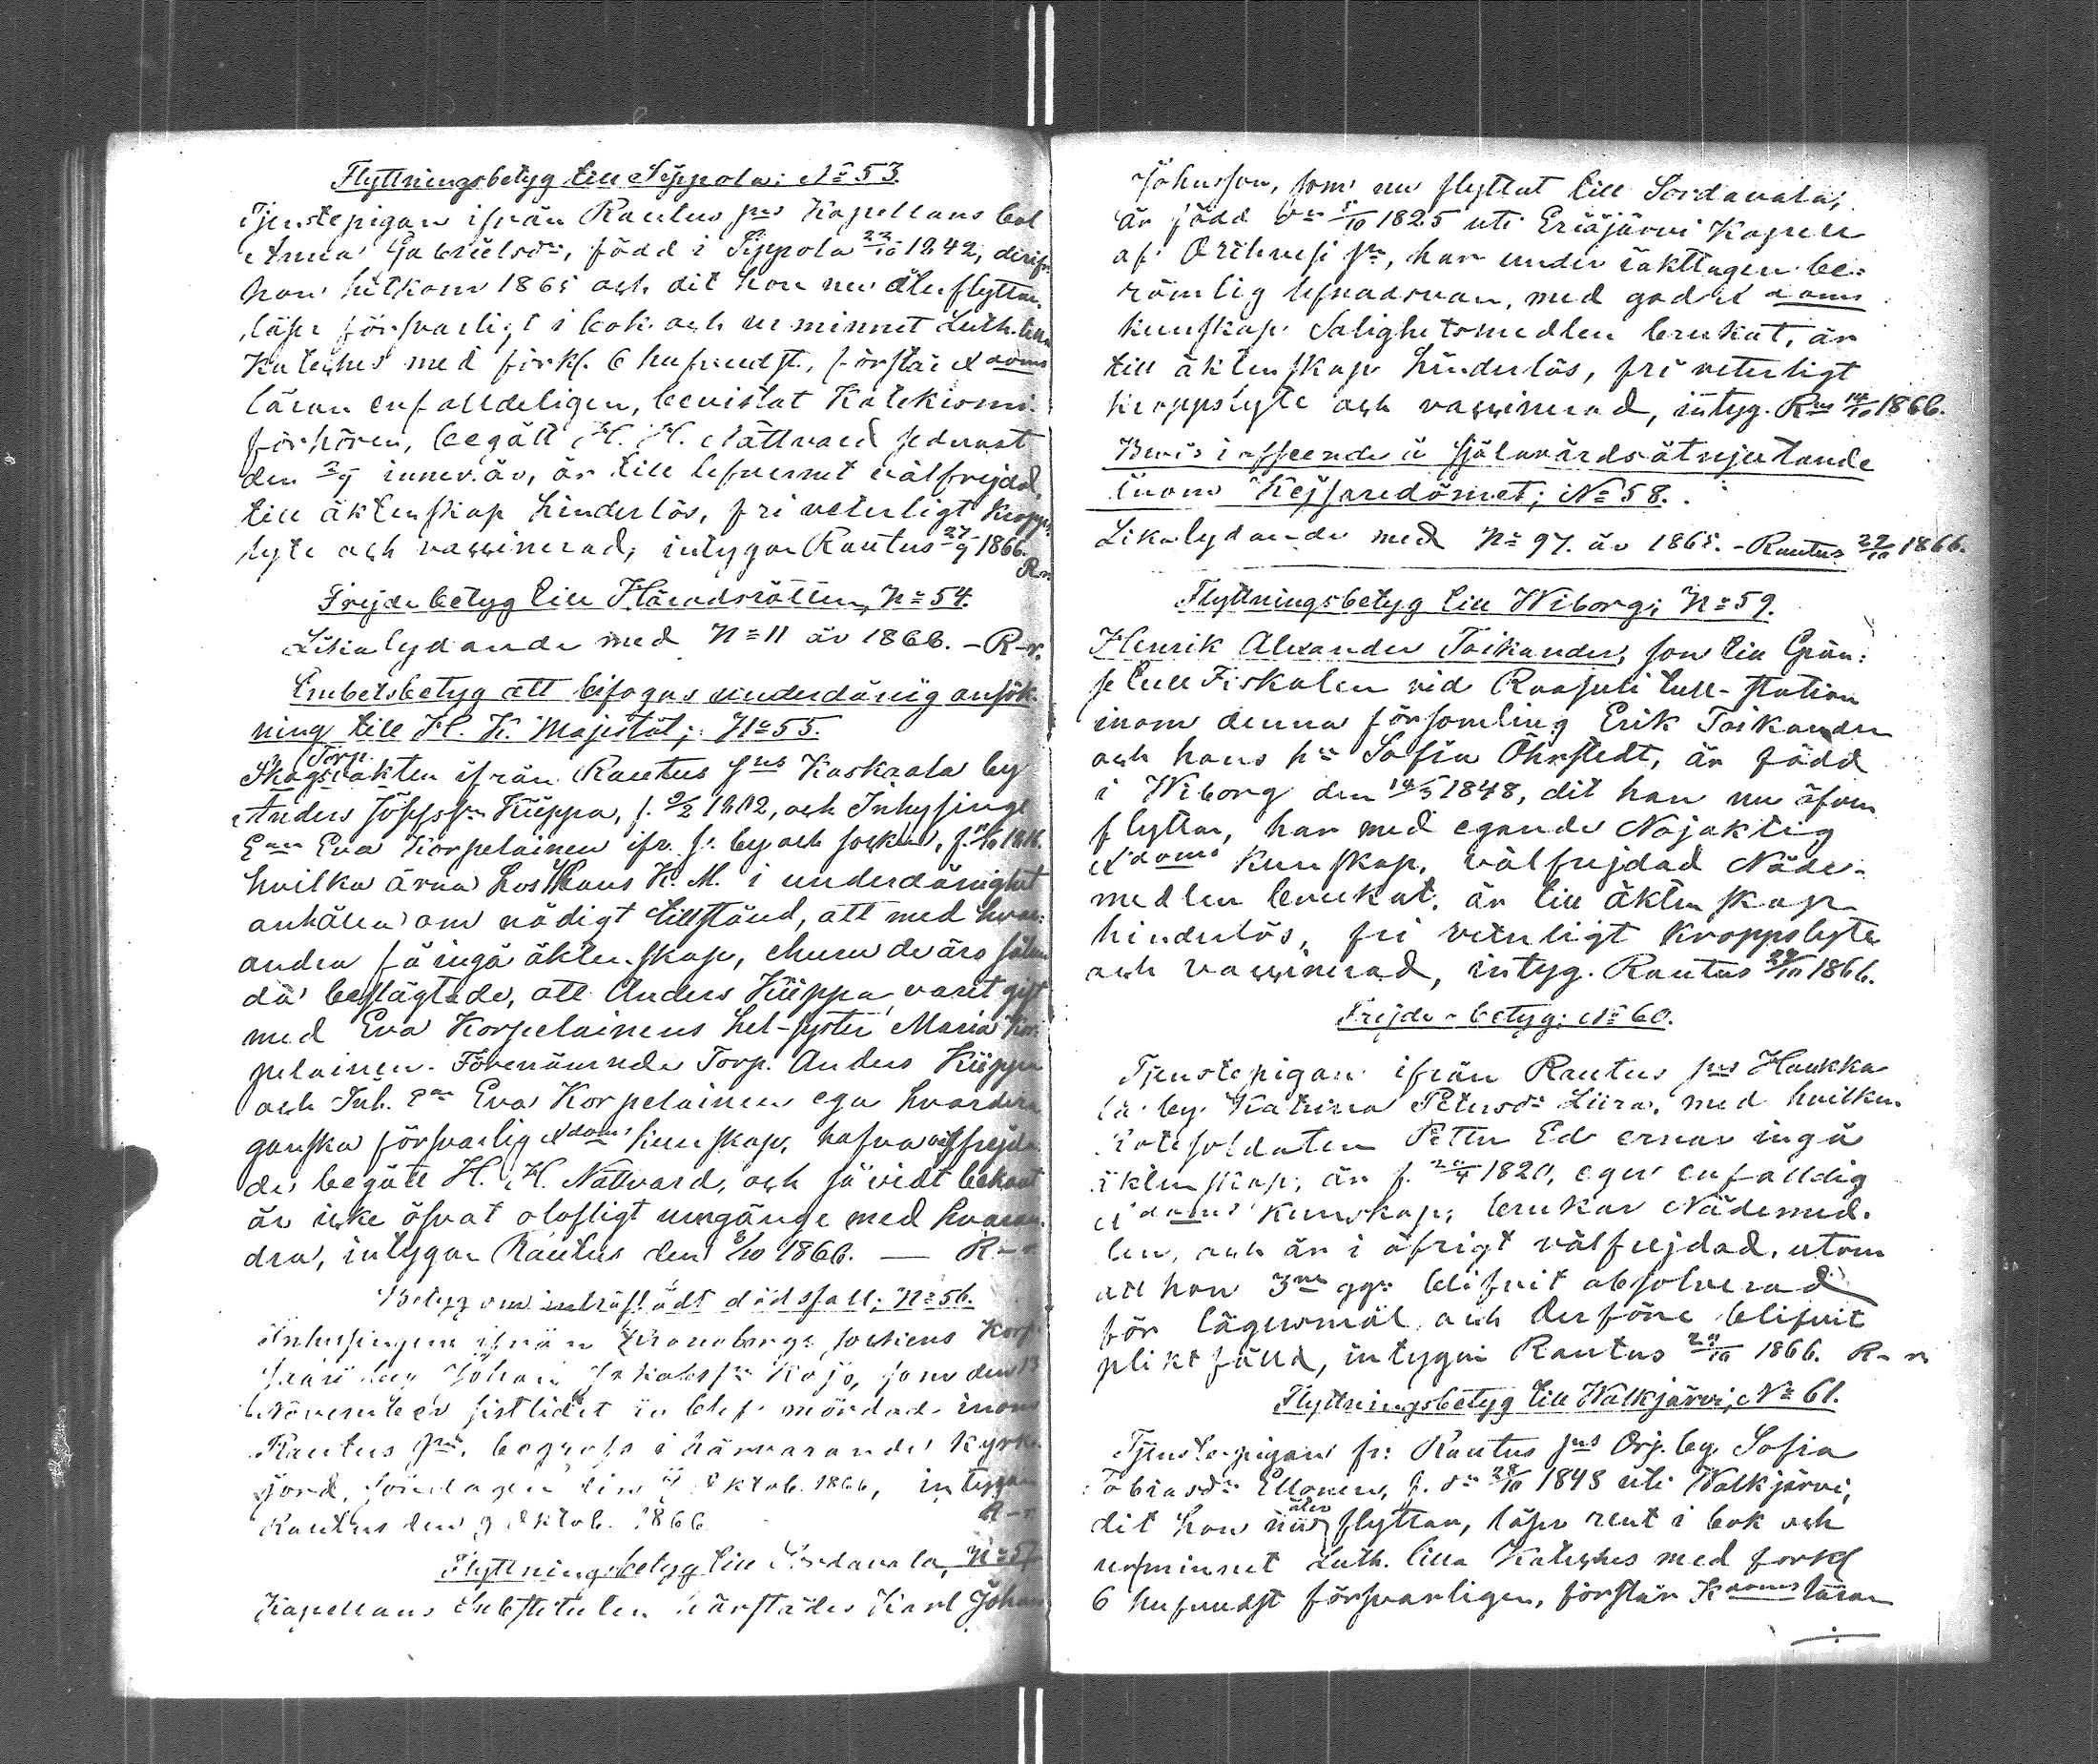 Flyttningsbetyg till Sippola; No 53.
Tjenstepigan ifrån Rautus sns Kapellans bol
Anna Gabrielsdr, född i Sippola 22/10 1842, derifr.
hon hitkom 1865 och dit hon nu åter flyttar,
läser försvarligt i bok och ur minnet Luth. lilla
Kateches med förkl. 6 hufvudst., förstår Xdoms
läran enfalldeligen, bevistat Katekismi
förhören, begått H. H. Nattvard sednast
den 2/9 innev. år, är till lefvernet välfrejdad,
till äktenskap hinderlös, fri veterligt kropps-
lyte och vaccinerad; intygar Rautus 27/9 1866.
R-n.
Frejdebetyg till Häradsrätten, No 54.
Likalydande med No 11 år 1866. - R-n.
Embetsbetyg att bifogas underdånig ansök-
ning till H. K. Majestät; No 55.
Torp.
Skogsvakten ifrån Rautus sns Kaskaala by
Anders Jöpsson Kiippa, f. 9/2 1802, och Inhysinge
Ean Eva Korpelainen ifr. s. by och socken, f. 1811.
hvilka ärna hos Hans K. M. i underdånighet
anhålla om nådigt tillstånd, att med hvar-
andra få ingå äktenskap, ehuru de äro sålun-
da beslägtade, att Anders Kiippa varit gift
med Eva Korpelainens hel-syster Maria Kor-
pelainen. Förenämnde Torp. Anders Kiippa
och Inh. Ean Eva Korpelainen ega hvardera
ganska försvarlig Xdoms kunskap, hafva välfrejda-
de begått H. H. Nattvard, och såvidt bekant
är icke öfvat olofligt umgänge med hvaran-
dra, intygar Rautus den 8/10 1866. — R-n
Betyg om inträffadt dödsfall; No 56.
Inhysingen ifrån Kronoborgs sockens Korpi-
saari by Johan Jakobsson Kojo, som den 13
November sistlidet år blef mördad inom
Rautus sn, begrofs i härvarande kyrko-
jord, Söndagen den Oktob. 1866, intygar
Rautus den 9 Oktob. 1866. R-n
Flyttningsbetyg till Sordavala, No 57
Kapellans Substituten härstädes Karl Johan
Johnsson, som nu flyttat till Sordavala,
är född den 5/10 1825 uti Eräjärvi Kapell
af Orihvesi sn, har under iakttagen be-
römlig lefnadsvan, med god Xdoms
kunskap Salighetsmedlen brukat, är
till äktenskap hinderlös, fri veterligt
kroppslyte och vaccinerad, intyg. Rus 14/10 1866.
Bevis i afseende å själavårds åtnjutande
inom Kejsaredömet; No 58.
Likalydande med No 97. år 1865. - Rautus 22/10 1866.
Flyttningsbetyg till Wiborg; No 59.
Henrik Alexander Toikander, son till Grän-
se tull Fiskalen vid Raasuli tull-station
inom denna församling Erik Toikander
och hans hu Sofia Öhrstedt, är född
i Wiborg den 14/5 1848, dit han nu äfven
flyttar, har med egande Nöjaktig
Xdoms kunskap, välfrejdad Nåde-
medlen brukat, är till äktenskap
hinderlös, fri veterligt kroppslyte
och vaccinerad, intyg. Rautus 28/10 1866.
Frejde-betyg; No 60.
Tjenstepigan ifrån Rautus sns Haukka
la by Katrina Petersdr Liira, med hvilken
Rotesoldaten Petter Ed ernar ingå
äktenskap, är f. 20/4 1820, eger enfalldig
Xdoms kunskap; brukar Nådemed-
len, och är i öfrigt välfrejdad, utom
att hon 3ne ggr blifvit absolverad
för lägersmål och derföre blifvit
pliktfälld, intygar Rautus 29/10 1866. R-n
Flyttningsbetyg till Walkjärvi; No 61.
Tjenstepigan fr: Rautus sns Orj. by Sofia
Tobiasdr Ellonen, f. dn 28/10 1843 uti Walkjärvi,
åter
dit hon nu flyttar, läser rent i bok och
ur minnet Luth. lilla Kateches med förkl
6 hufvudst försvarligen, förstår Xdoms läran